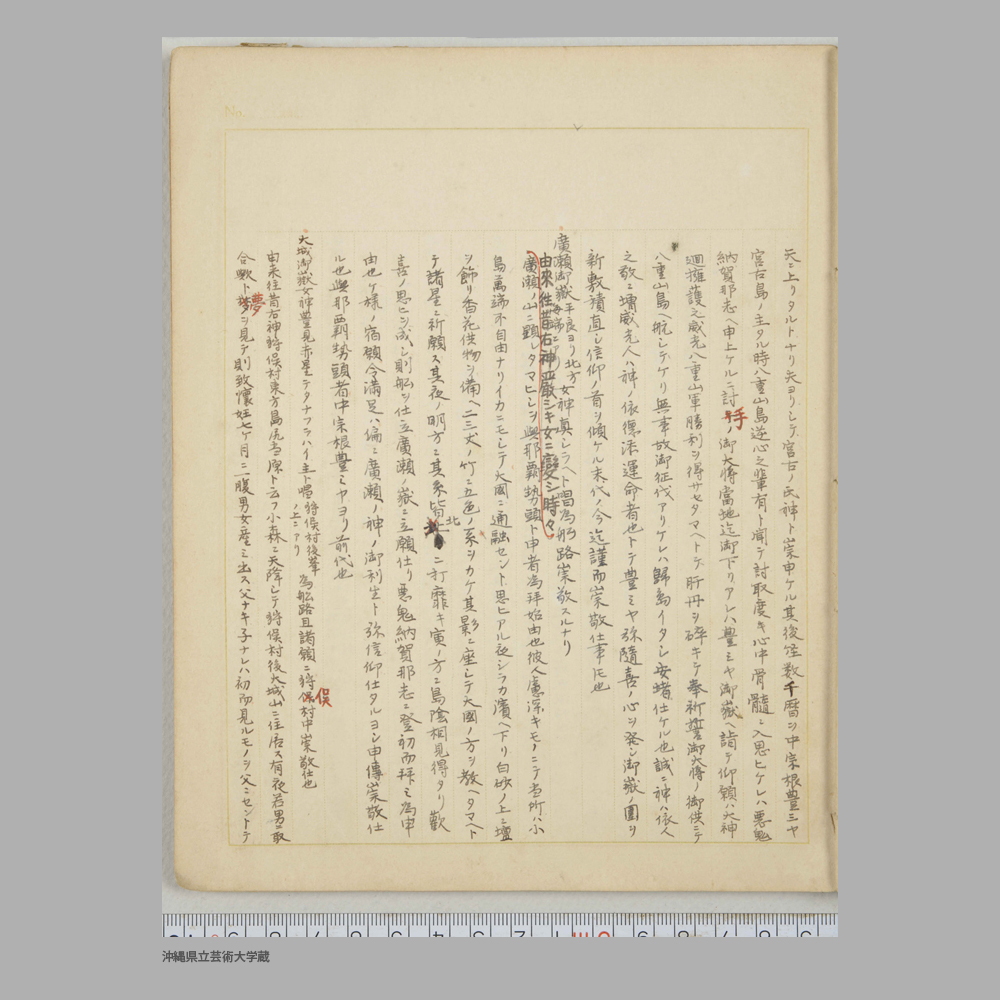 天ニ上リタルトナリ夫ヨリシテ宮古ノ氏神ト崇申ケル其後経数千暦ヲ中宗根豊ミヤ
宮古島ノ主タル時八重山島逆心之輩有ト聞テ討取度キ心中骨髄ニ入思ヒケレハ悪鬼
納賀那志ヘ申上ケルニ討手ノ御大将當地迄御下リアレハ豊ミヤ御嶽ヘ詣テ仰願ハ大神
廻擁護之威光八重山軍勝利ヲ得サセタマヘトテ肝丹ヲ碎キテ奉祈誓御大将ノ御供ニテ
八重山島ヘ航シテケリ無事故御征伐アリケレハ歸島イタシ安堵仕ケル也誠ニ神ハ依人
之敬ニ増威光人ハ神ノ依徳添運命者也トテ豊ミヤ弥隨喜ノ心ヲ発シ御嶽ノ圍ヲ
新敷積直シ信仰ノ首ヲ傾ケル末代ノ今迄謹而崇敬仕事ニ也
廣瀬御嶽 平良ヨリ北方女神真シラヘト唱為船路崇敬スルナリ
由来往昔右神 厳シキ女ニ變シ時々
廣瀬ノ山ニ顕レタマヒシヲ與那覇勢頭ト申者為拝始由也彼人慮深キモノニテ当所ハ小
島萬端不自由ナリイカニモシテ大國ニ通融セント思ヒアル夜シラカ濱ヘ下リ白砂ノ上ニ壇
ヲ飾リ香花供物ヲ備ヘ二三丈ノ竹ニ五色ノ糸ヲカケ其影ニ座シテ大國ノ方ヲ教ヘタマヘト
テ諸星ニ祈願ス其夜ノ明方ニ其糸皆北ニ打靡キ寅ノ方ニ島陰相見得タリ歡
喜ノ思ヒヲ成シ則船ヲ仕立廣瀬ノ嶽ニ立願仕リ悪鬼納賀那志ニ登初而拝ミ為申
由也ケ様ノ宿願令満足ハ偏ニ廣瀬ノ神ノ御利生ト弥信仰仕タルヨシ申傳崇敬仕
ル也與那覇勢頭者中宗根豊ミヤヨリ前代也
大城御嶽 女神豊見赤星テタナフラハイ主ト唱狩俣村後峯ノ上ニアリ 為船路且諸願ニ狩俣村中崇敬仕也
由来往昔右神狩俣村東方島尻当原ト云フ小森ニ天降シテ狩俣村後大城山ニ住居ス有夜若男取
合歟ト夢ヲシ見テ則致懐妊七ケ月ニ一腹男女産ミ出ス父ナキ子ナレハ初而見ルモノヲ父ニセントテ
沖縄県立芸術大学蔵